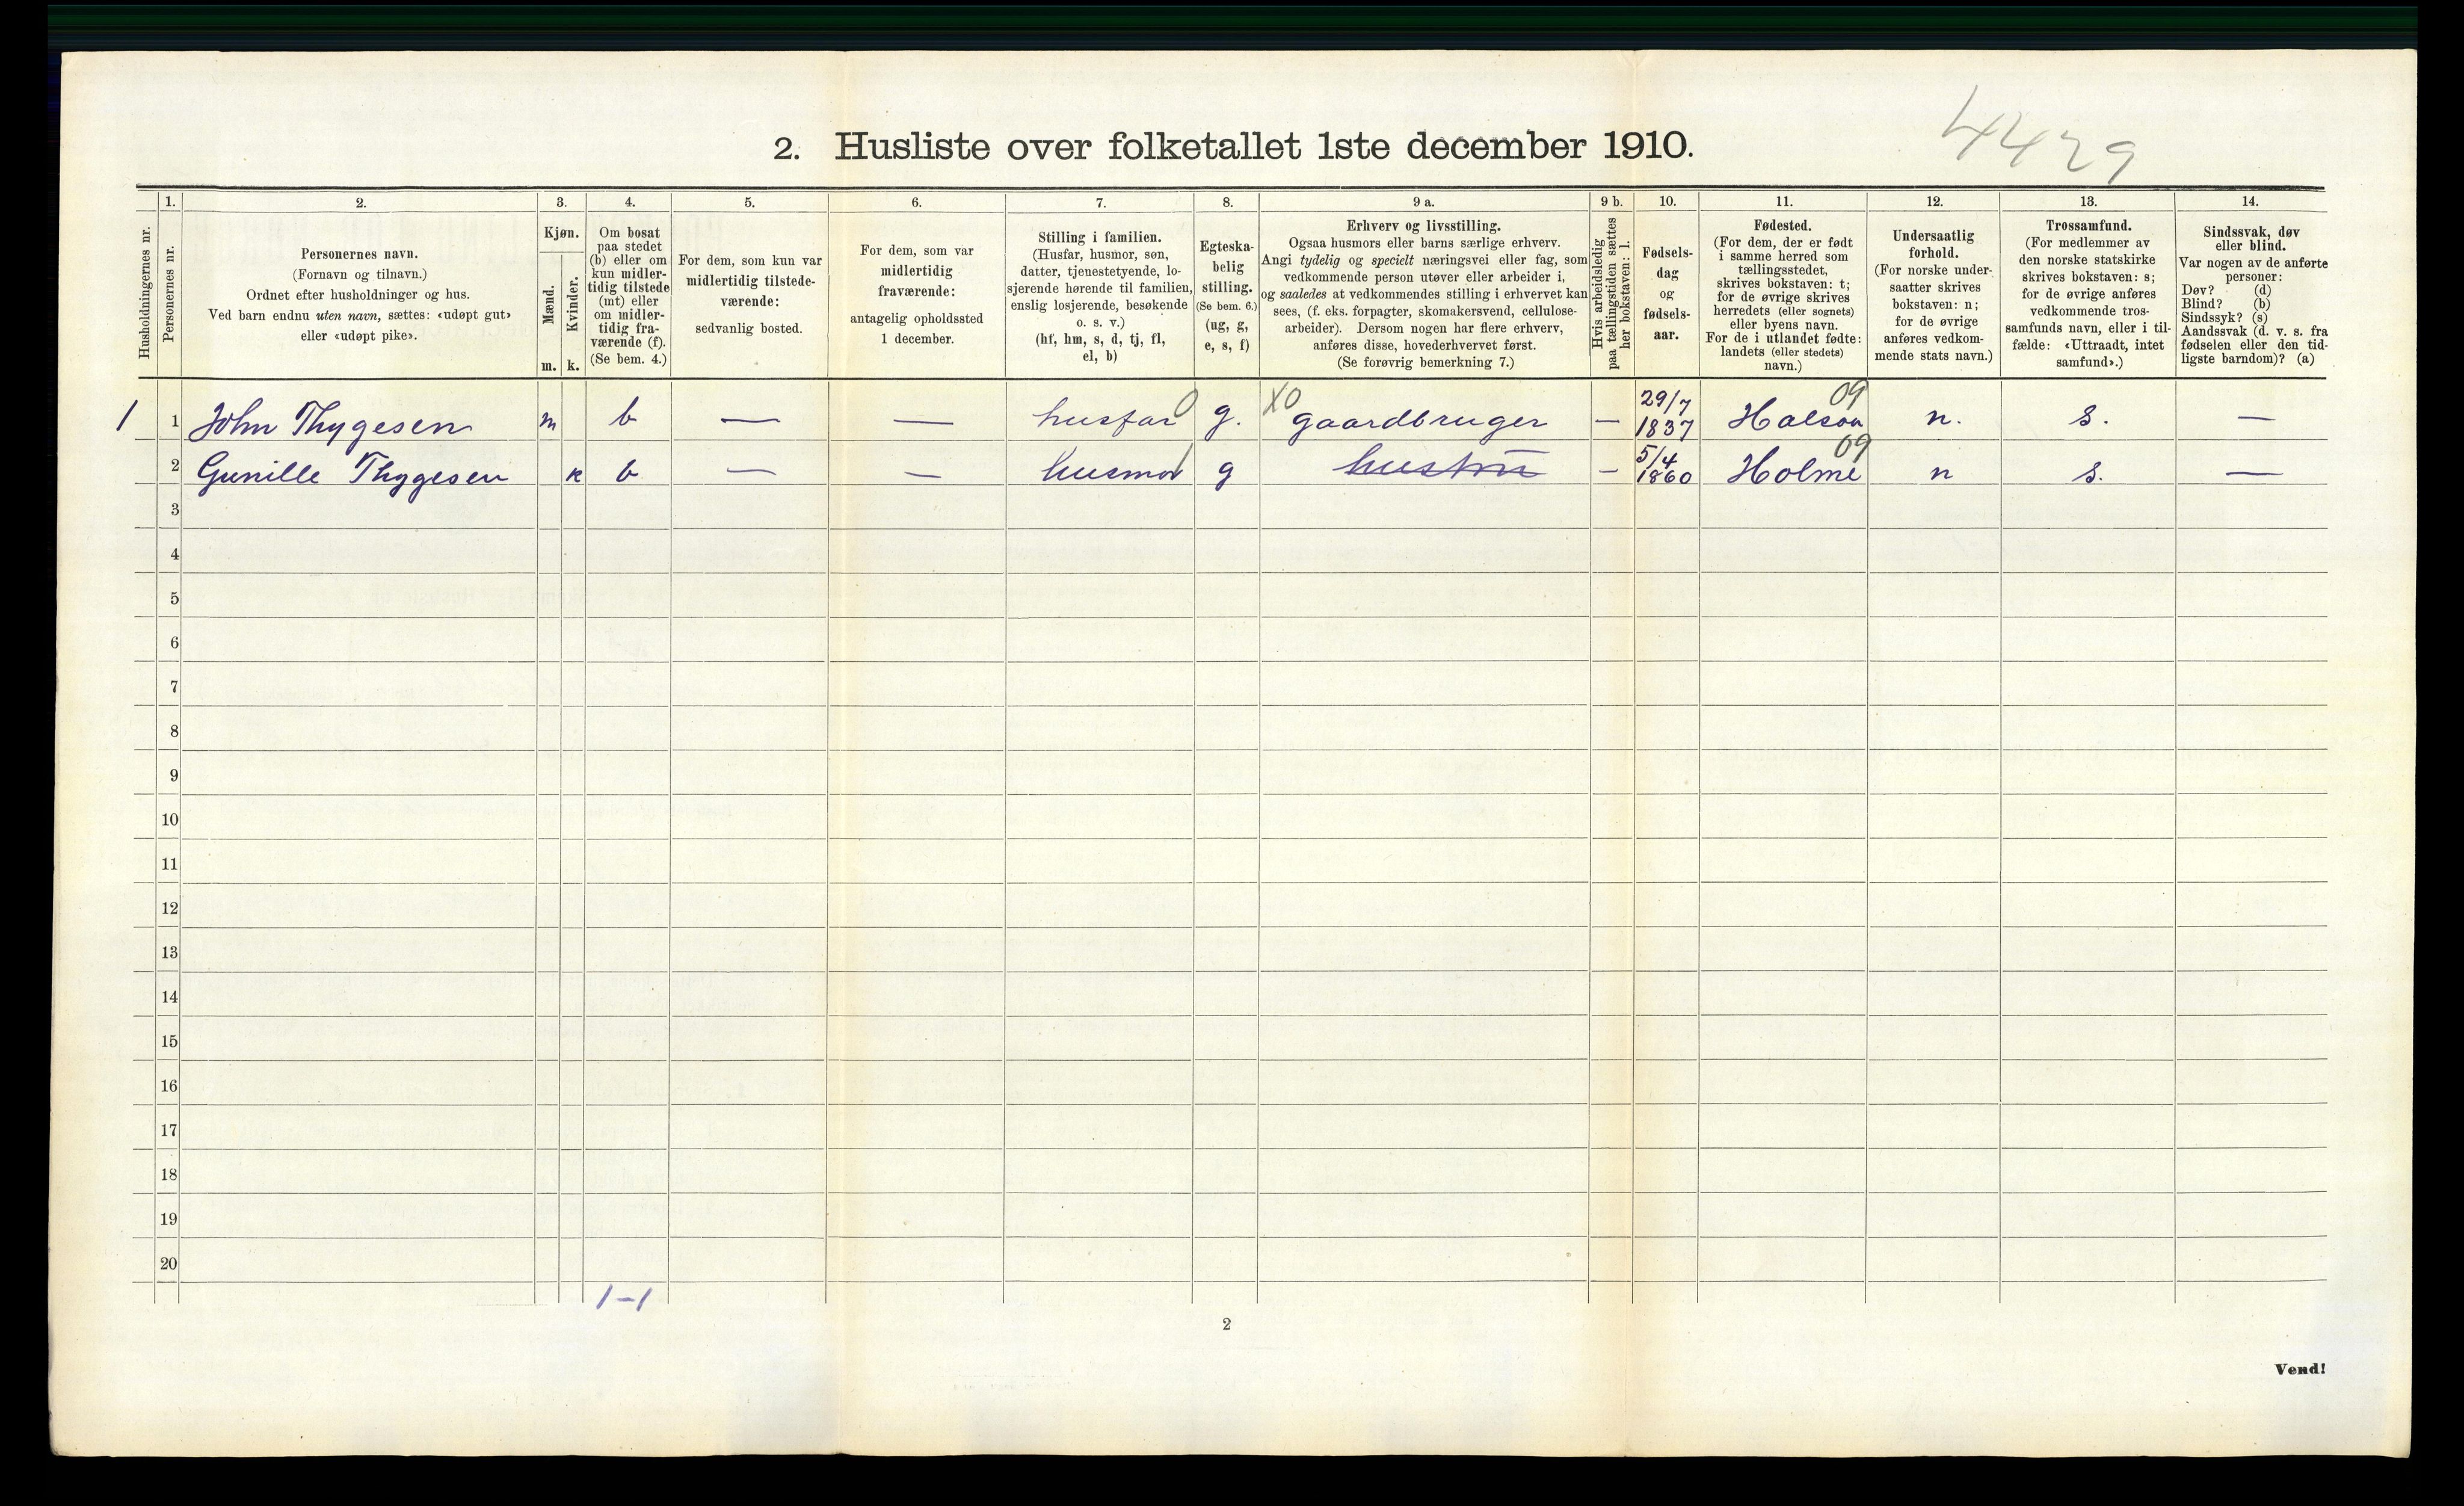 4429
2. Husliste over folketallet 1ste december 1910.
Husholdningernes nr.
1.
Personernes nr.
2.
Personernes navn.
(Fornavn og tilnavn.)
Ordnet efter husholdninger og hus.
Ved barn endnu uten navn, sættes: «udøpt gut»
eller «udøpt pike».
3.
Kjøn.
Mænd.
Kvinder.
m. k.
4.
Om bosat
paa stedet
(b) eller om
kun midler-
tidig tilstede
(mt) eller
om midler-
tidig fra-
værende (f).
(Se bem. 4.)
5.
For dem, som kun var
midlertidig tilstede-
værende:
sedvanlig bosted.
6.
For dem, som var
midlertidig
fraværende:
antagelig opholdssted
1 december.
7.
Stilling i familien.
(Husfar, husmor, søn,
datter, tjenestetyende, lo-
sjerende hørende til familien,
enslig losjerende, besøkende
o. s. v.)
(hf, hm, s, d, tj, fl,
el, b)
8.
Egteska-
belig
stilling.
(Se bem. 6.)
(ug, g,
e, s, f)
9 a.
Erhverv og livsstilling.
Ogsaa husmors eller barns særlige erhverv.
Angi tydelig og specielt næringsvei eller fag, som
vedkommende person utøver eller arbeider i,
og saaledes at vedkommendes stilling i erhvervet kan
sees, (f. eks. forpagter, skomakersvend, cellulose-
arbeider). Dersom nogen har flere erhverv,
anføres disse, hovederhvervet først.
(Se forøvrig bemerkning 7.)
9 b.
Hvis arbeidsledig
paa tællingstiden sættes
her bokstaven: l.
10.
Fødsels-
dag
og
fødsels-
aar.
11.
Fødested.
(For dem, der er født
i samme herred som
tællingsstedet,
skrives bokstaven: t;
for de øvrige skrives
herredets (eller sognets)
eller byens navn.
For de i utlandet fødte:
landets (eller stedets)
navn.)
12.
Undersaatlig
forhold.
(For norske under-
saatter skrives
bokstaven: n;
for de øvrige
anføres vedkom-
mende stats navn.)
13.
Trossamfund.
(For medlemmer av
den norske statskirke
skrives bokstaven: s;
for de øvrige anføres
vedkommende tros-
samfunds navn, eller i til-
fælde: «Uttraadt, intet
samfund».)
14.
Sindssvak, døv
eller blind.
Var nogen av de anførte
personer:
Døv? (d)
Blind? (b)
Sindssyk? (s)
Aandssvak (d. v. s. fra
fødselen eller den tid-
ligste barndom)? (a)
1 1 John Thygesen m b — — husfar 0 g. X0 gaardbruger — 29/7 1837 Halsaa 09 n. s. —
2 Gunille Thygesen k b — — husmor g hustru — 5/4 1860 Holme 09 n s. —
3
4
5
6
7
8
9
10
11
12
13
14
15
16
17
18
19
20
1-1
2
Vend!